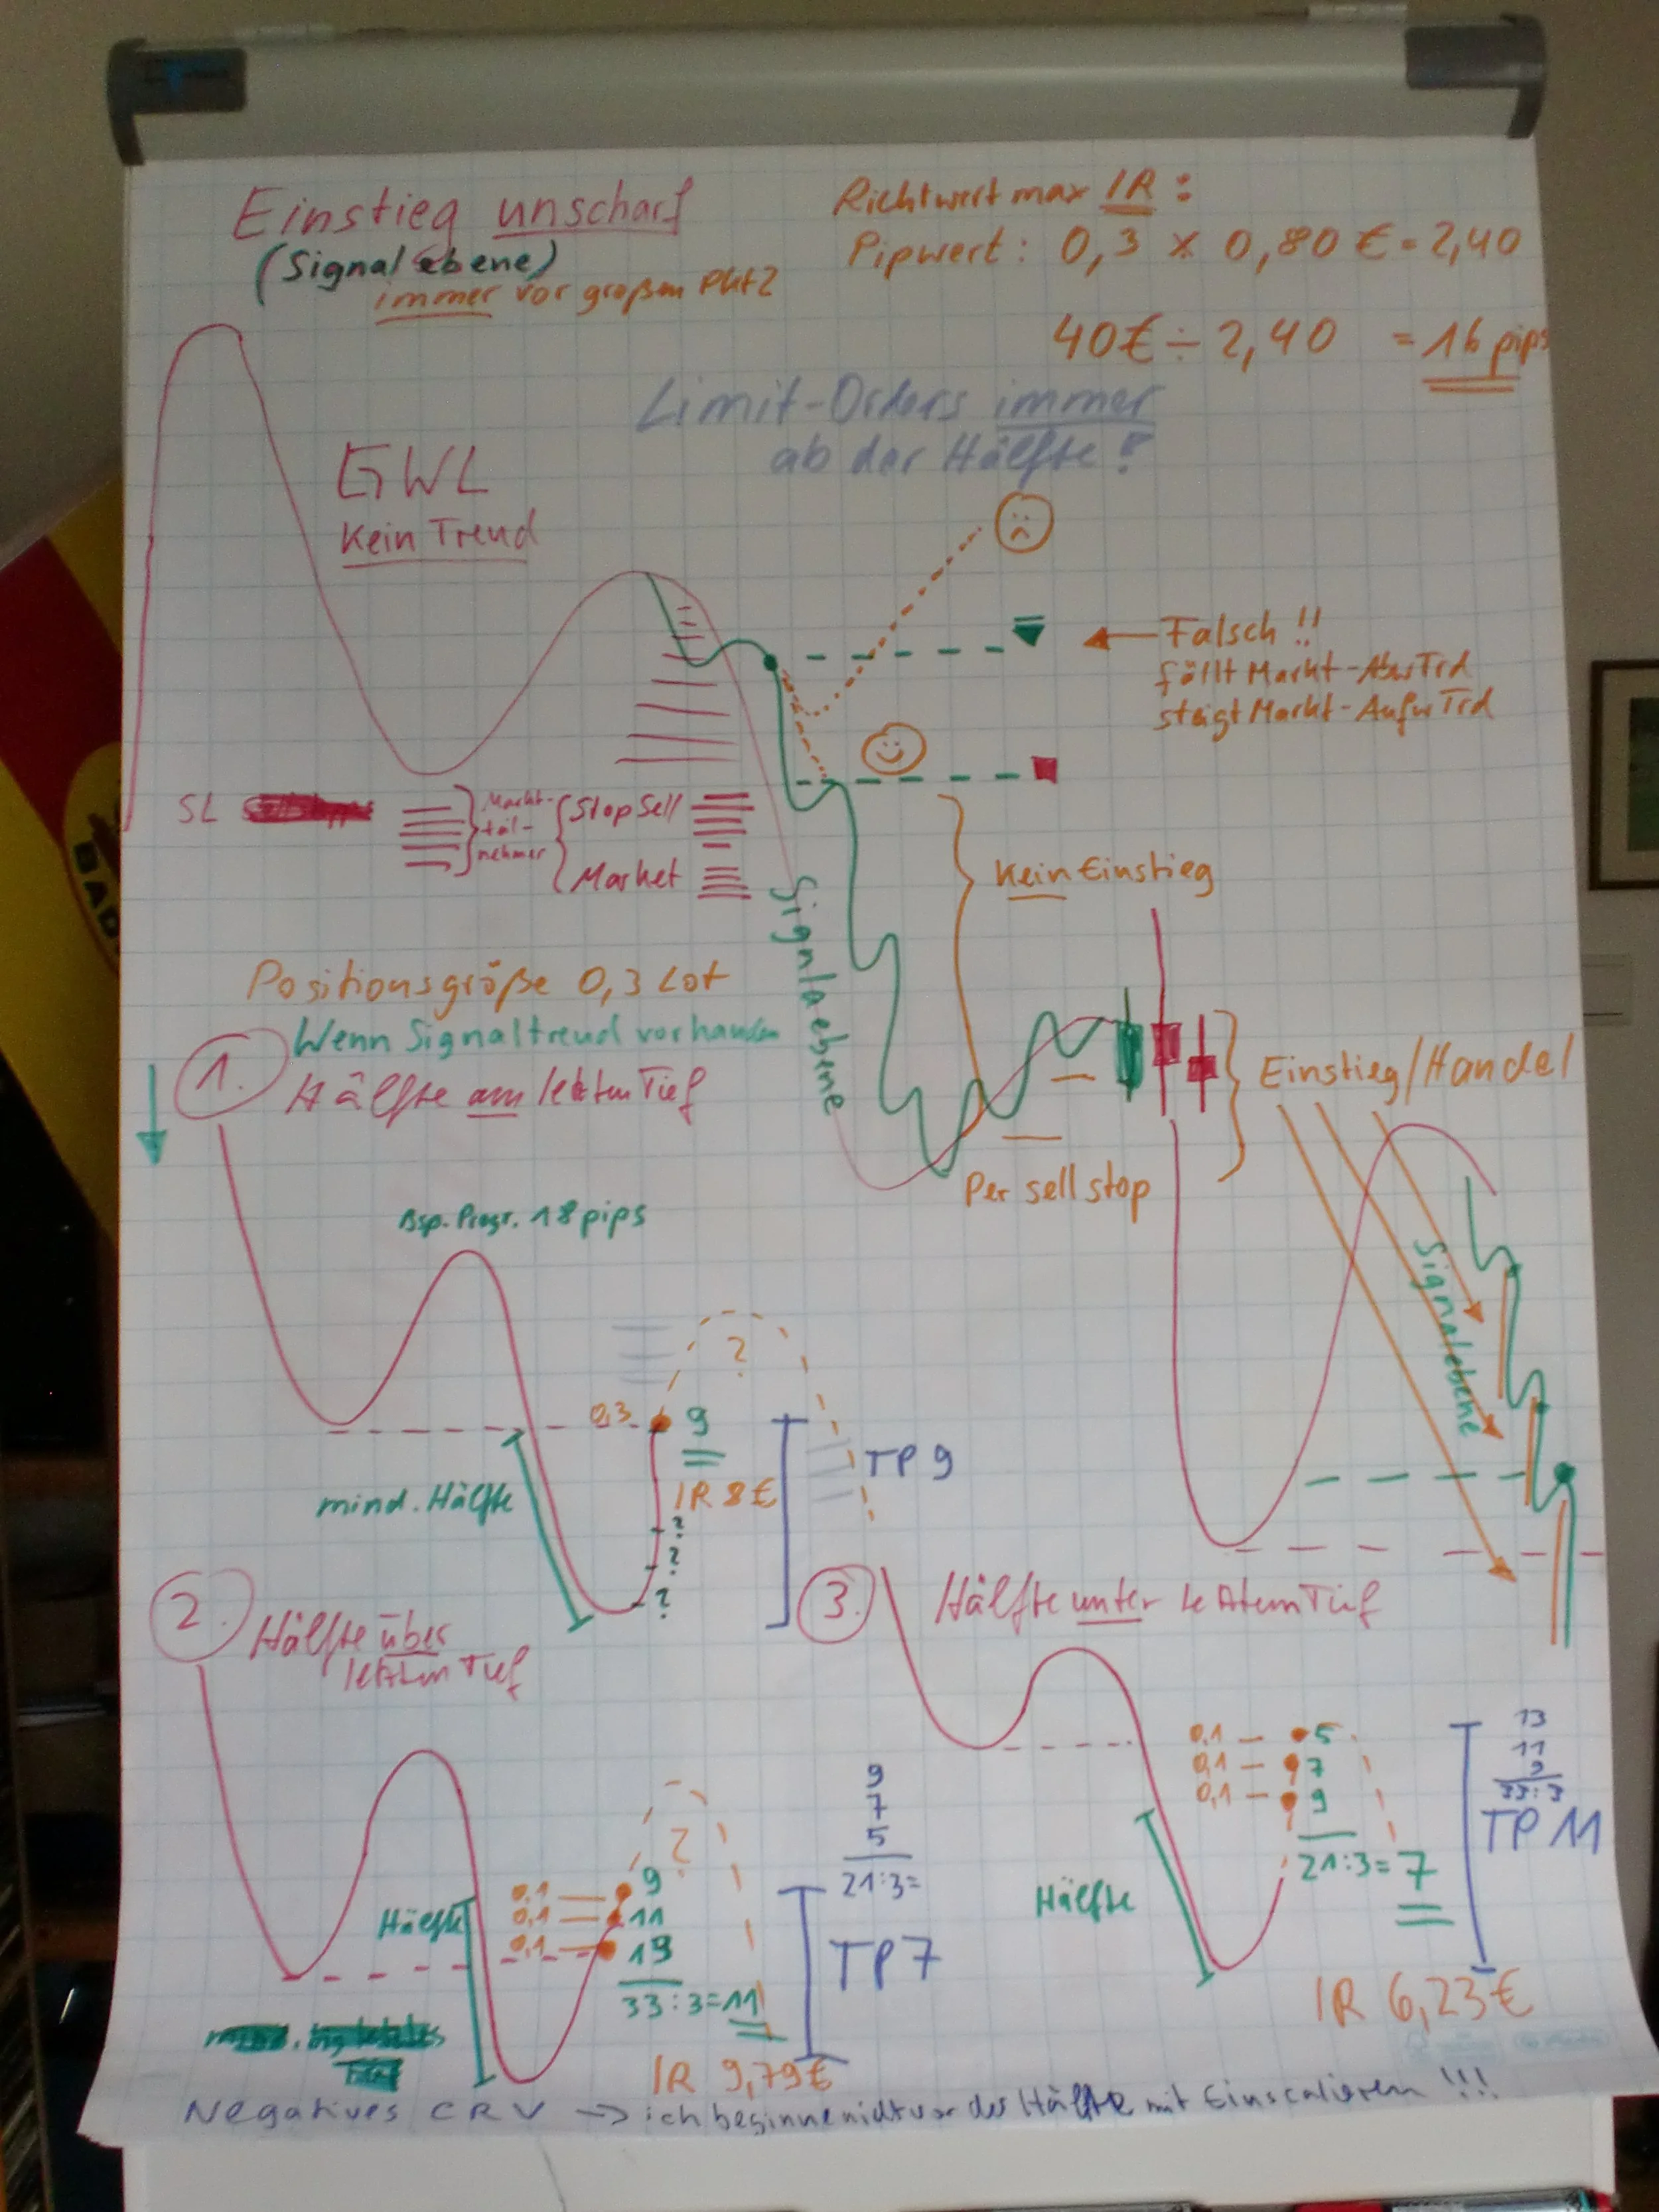 Einstieg unscharf
(Signalebene)
immer vor großem Pkt2
Richtwert max IR:
Pipwert: 0,3 x 0,80 € = 2,40
40€ ÷ 2,40 = 16 pips
Limit-Orders immer
ab der Hälfte!
GWL
Kein Trend
Falsch!!
fällt Markt-AbwTrd
steigt Markt-AufwTrd
SL
Markt-
teil-
nehmer
StopSell
Market
Kein Einstieg
Signlaebene
Positionsgröße 0,3 Lot
Wenn Signaltrend vorhanden
1. Hälfte am letzten Tief
Einstieg/Handel
Per sell stop
Signalebene
Bsp. Progr. 18 pips
?
0,3
9
IR 8€
TP 9
mind. Hälfte
?
?
?
2. Hälfte über
letztem Tief
3. Hälfte unter letztem Tief
Hälfte
?
0,1 9
0,1 11
0,1 13
33:3=11
IR 9,79€
9
7
5
21:3=
TP 7
Hälfte
0,1 5
0,1 7
0,1 9
21:3=7
13
11
9
33:3
TP 11
IR 6,23€
mind.
Negatives CRV -> ich beginne nicht vor der Hälfte mit Einscalieren !!!
BAD